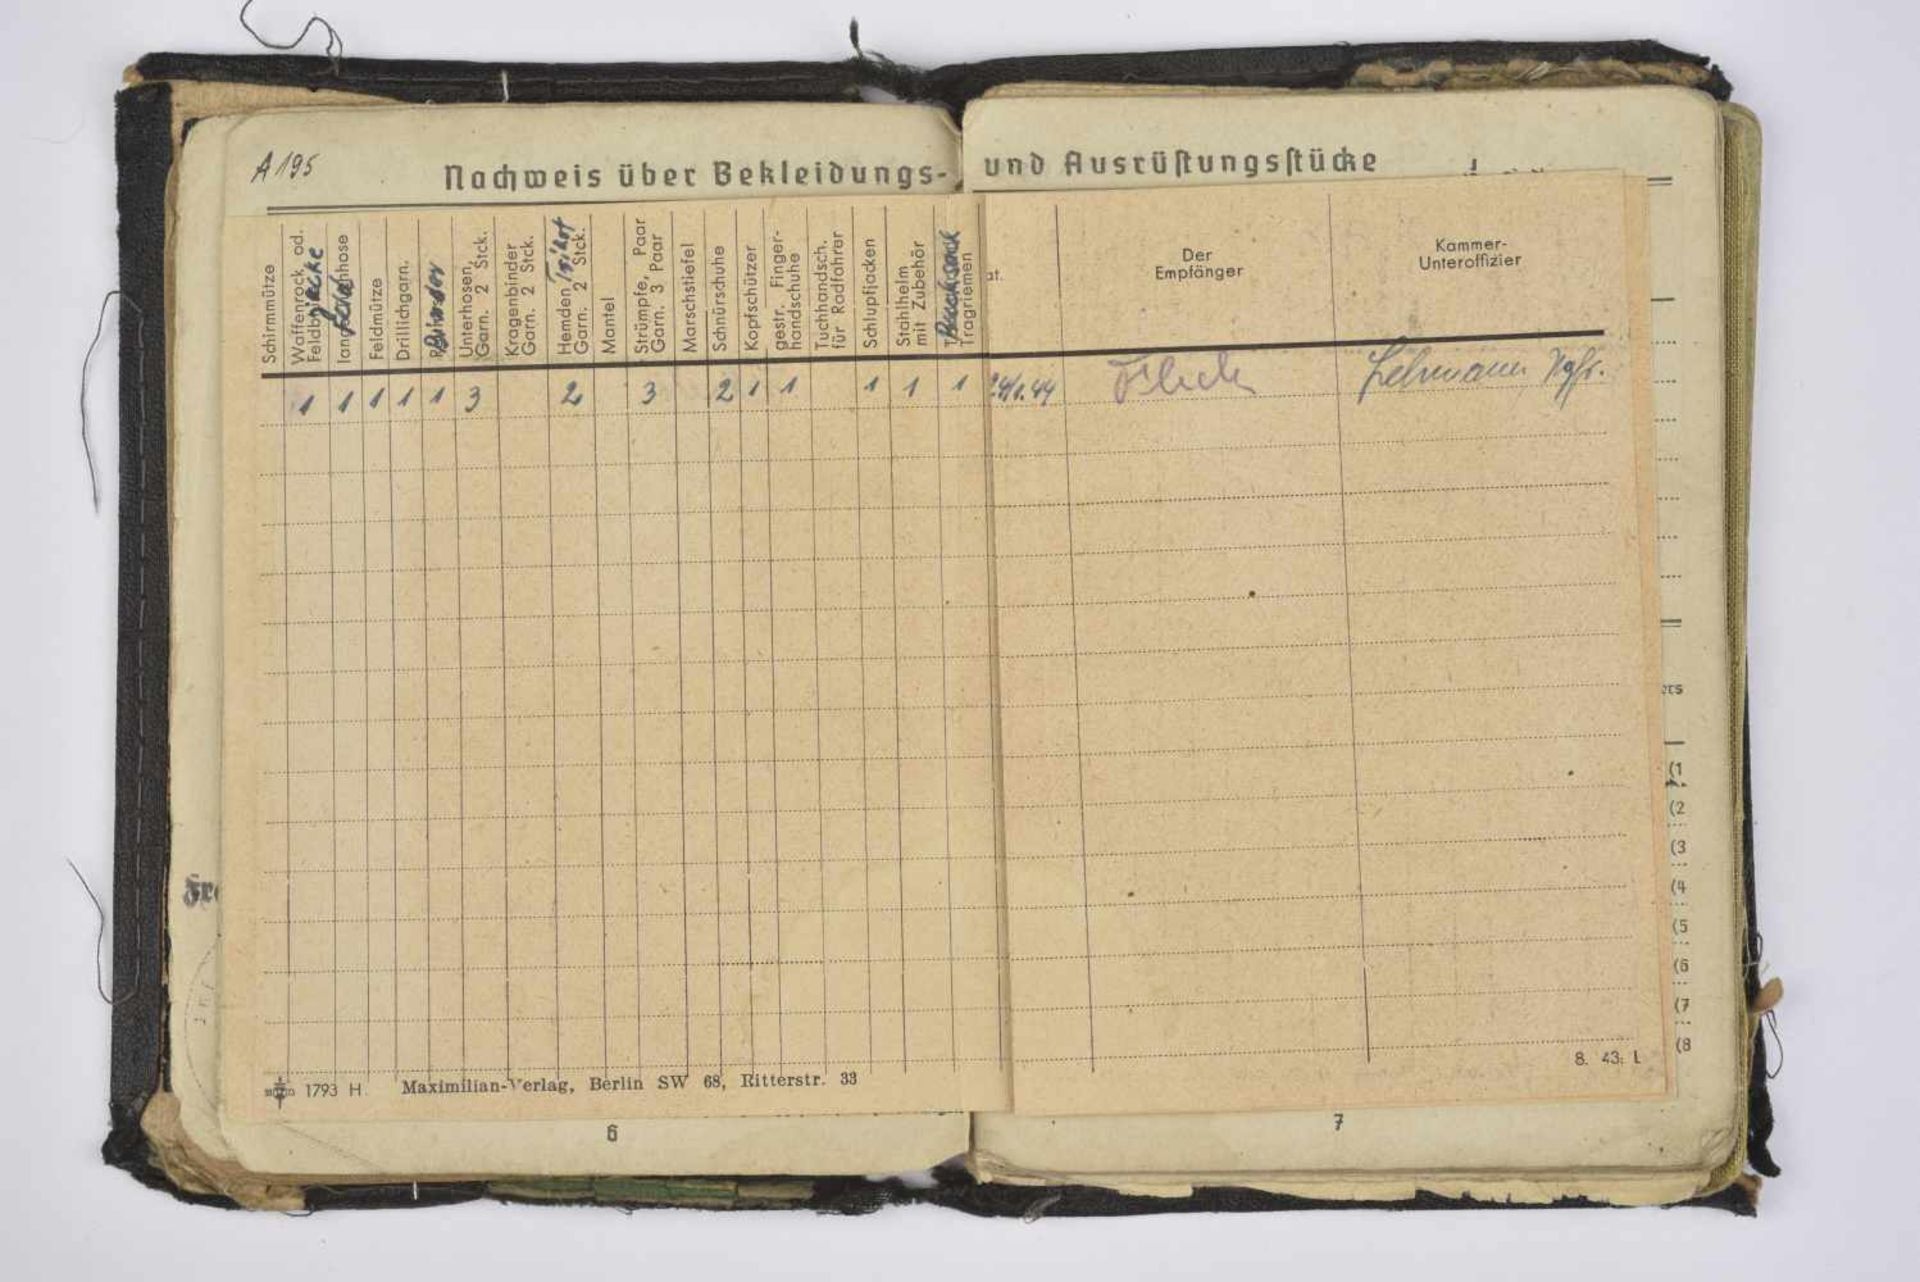 A 195
Nachweis über Bekleidungs- und Ausrüstungsstücke
Schirmmütze
Waffenrock od.
Feldbl jacke
lang hose
Feldmütze
Drillichgarn.
Unterhosen,
Garn. 2 Stck.
Kragenbinder
Garn. 2 Stck.
Hemden/Trikot
Garn. 2 Stck.
Mantel
Strümpfe, Paar
Garn. 3 Paar
Marschstiefel
Schnürschuhe
Kopfschützer
gestr. Finger-
handschuhe
Tuchhandsch.
für Radfahrer
Schlupfjacken
Stahlhelm
mit Zubehör
Rucksack
Tragriemen
at.
Der
Empfänger
Kammer-
Unteroffizier
1 1 1 1 1 3 2 3 2 1 1 1 1 1 24/1.44 Flick Lehmann
ers
(1
(2
(3
(4
(5
(6
(7
(8
Fre
1793 H. Maximilian-Verlag, Berlin SW 68, Ritterstr. 33
8. 43. L
6
7